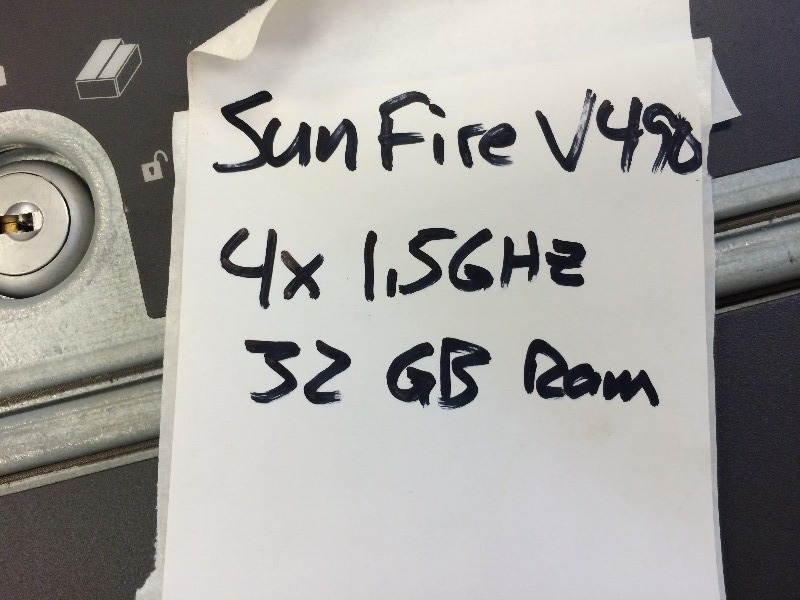 Sun Fire V490
4x 1,5GHz
32 GB Ram